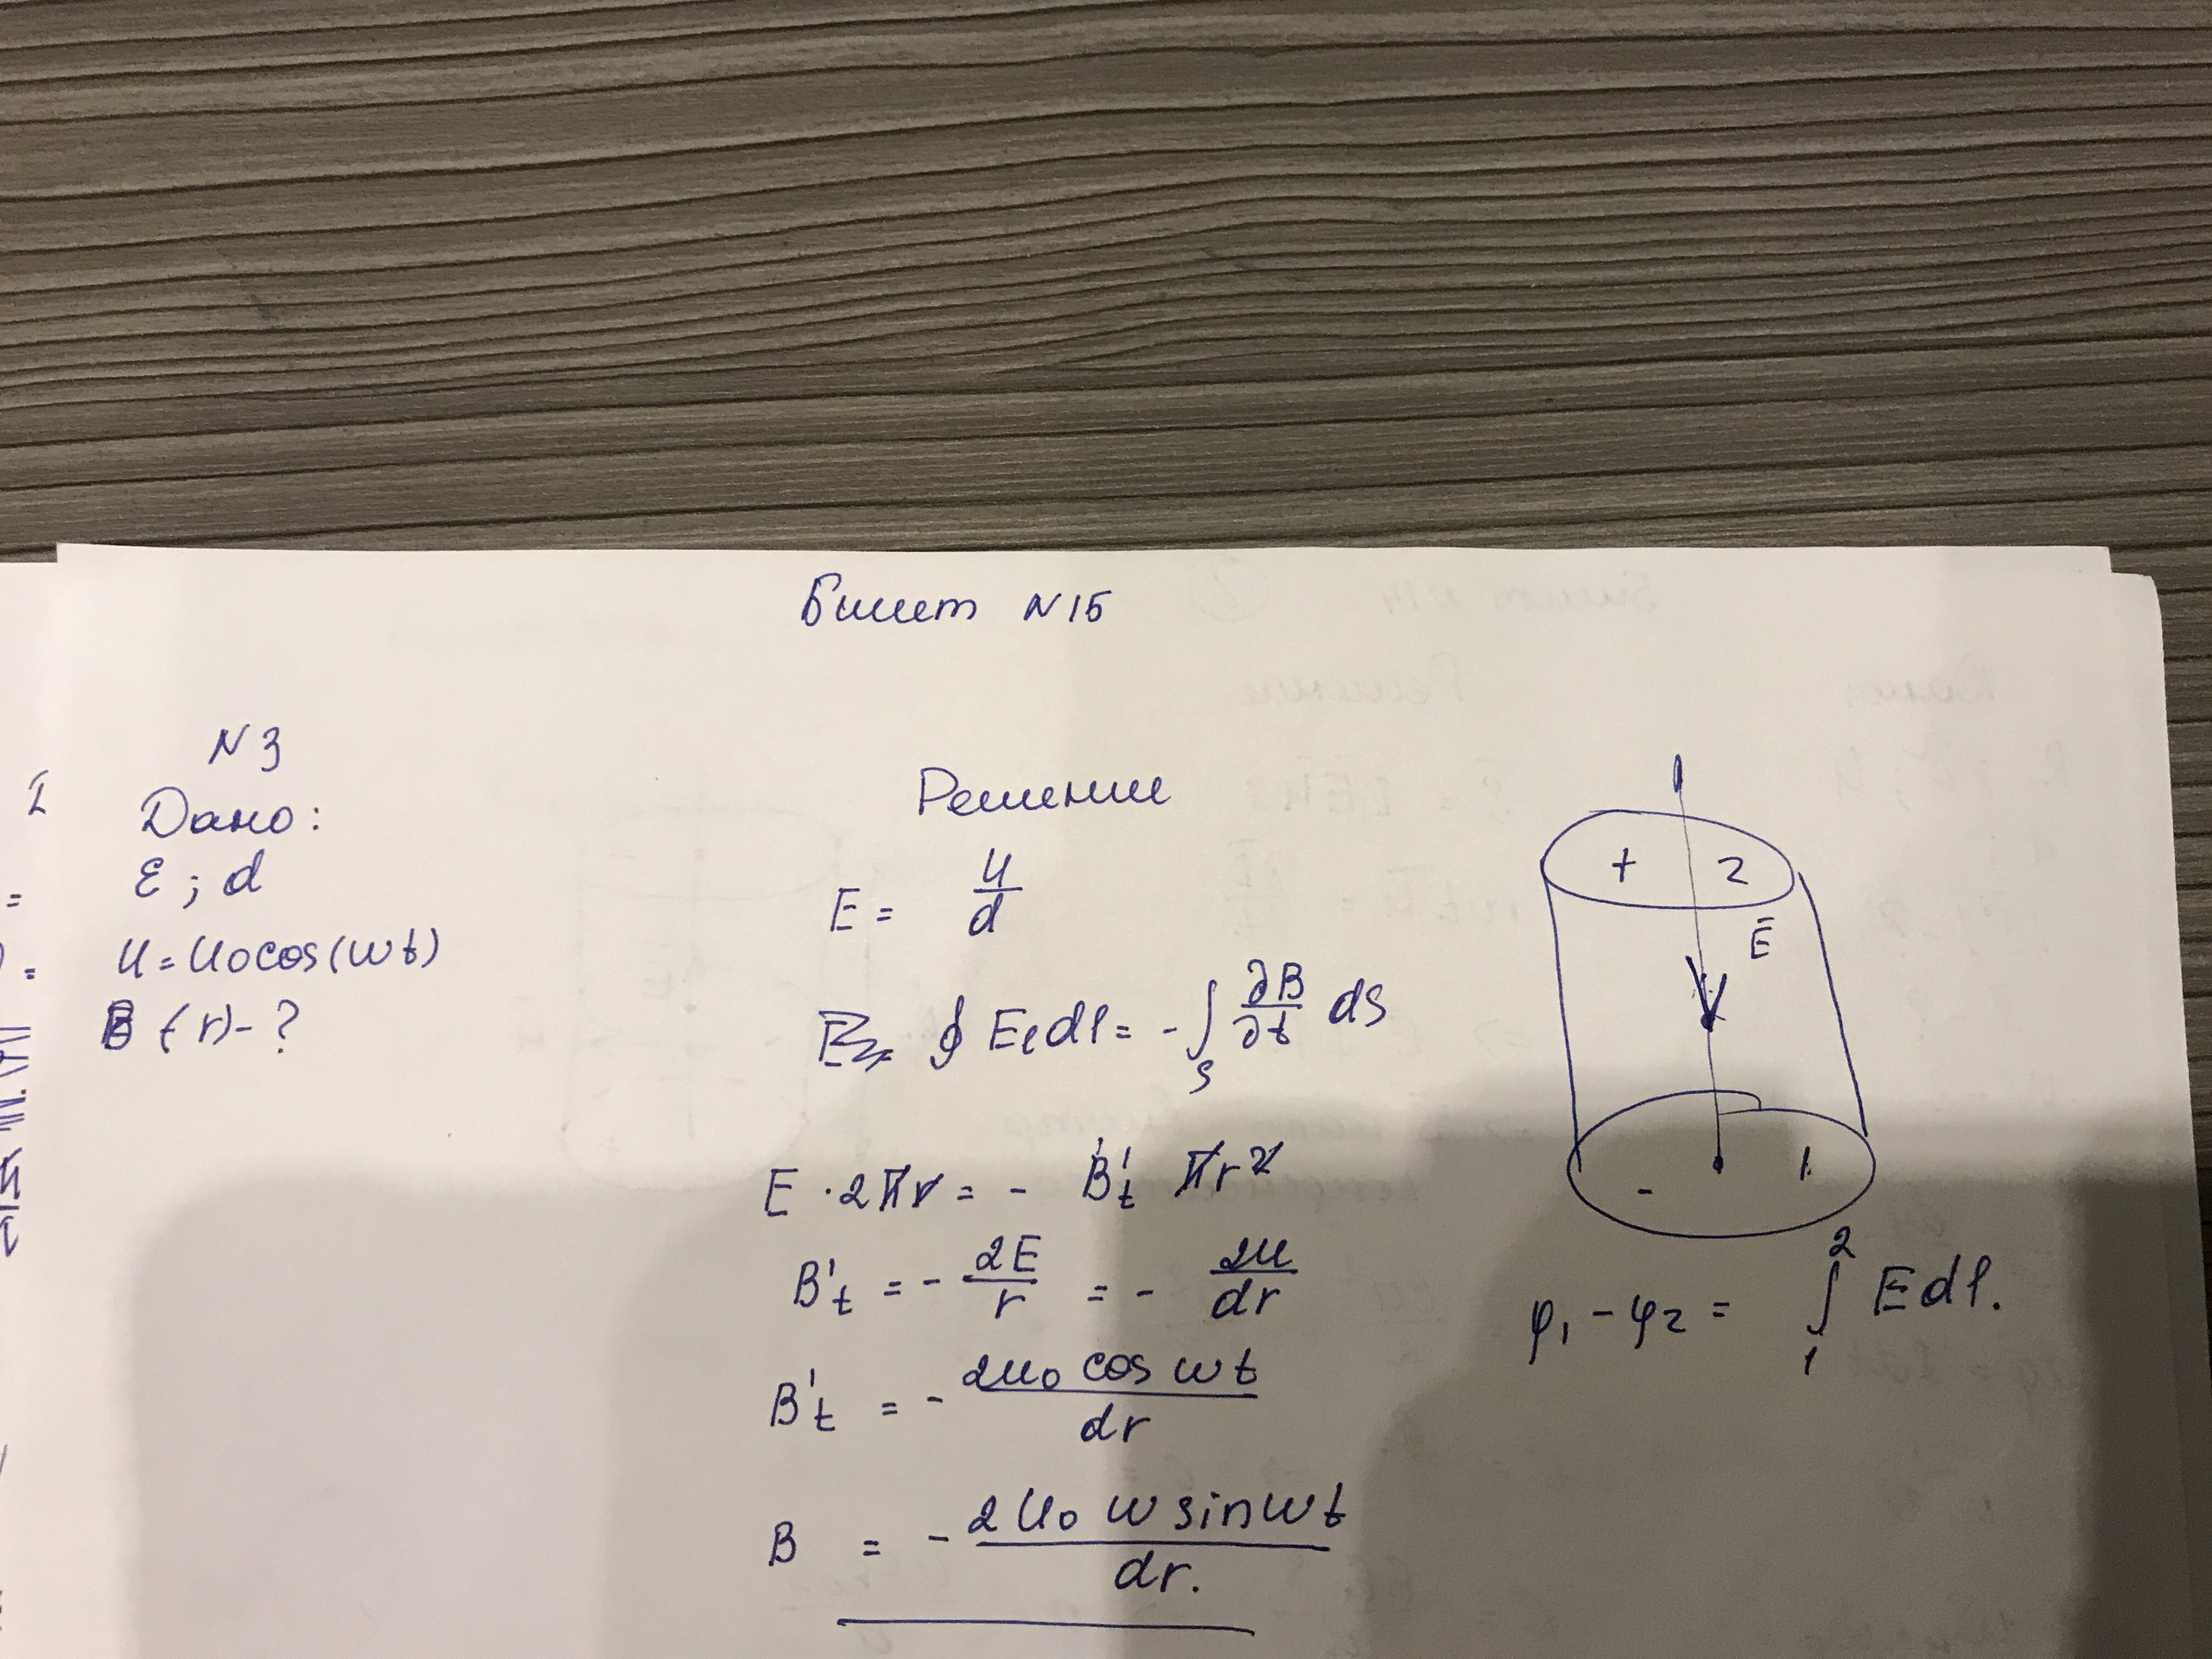 Билет N15
N3
Дано:
ε ; d
U = U0 cos(wt)
B (r) - ?
Решение
E = U/d
∮ Eℓ dl = - ∫S ∂B/∂t dS
E · 2πr = - B't πr²
B't = - 2E/r = - 2U/dr
B't = - 2U0 cos wt/dr
B = - 2U0 w sin wt/dr.
+ 2
Ē
- 1
φ1 - φ2 = ∫₁² E dl.